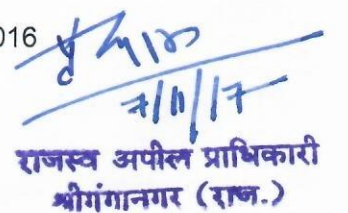 016
7/11/17
राजस्व अपील प्राधिकारी
श्रीगंगानगर (राज.)